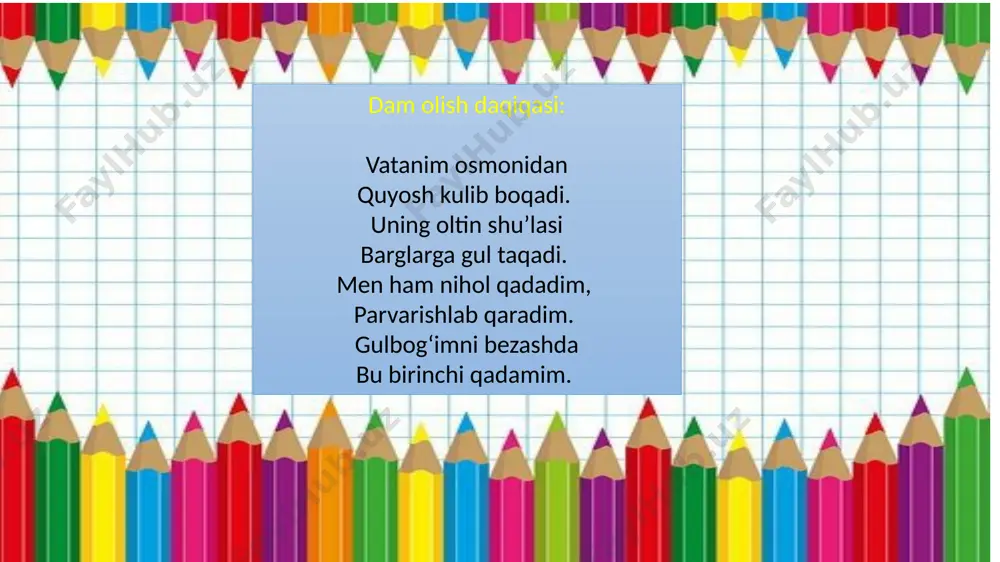 Dam olish daqiqasi:
Vatanim osmonidan
Quyosh kulib boqadi.
Uning oltin shu’lasi
Barglarga gul taqadi.
Men ham nihol qadadim,
Parvarishlab qaradim.
Gulbog‘imni bezashda
Bu birinchi qadamim.
FaylHub.uz
FaylHub.uz
FaylHub.uz